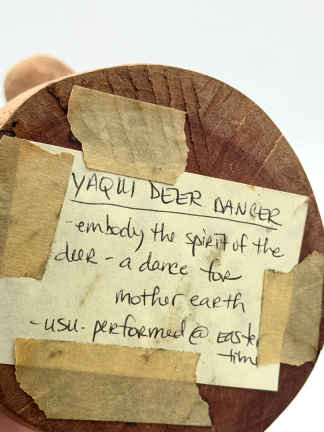 YAQUI DEER DANCER
-embody the spirit of the
deer - a dance for
mother earth
-usu. performed @ easter
time